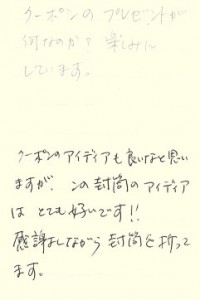 クーポンのプレゼントが
何なのか？楽しみに
しています。
クーポンのアイディアも良いなと思い
ますが、この封筒のアイディア
は とても好いです!!
感謝しながら封筒を折って
ます。